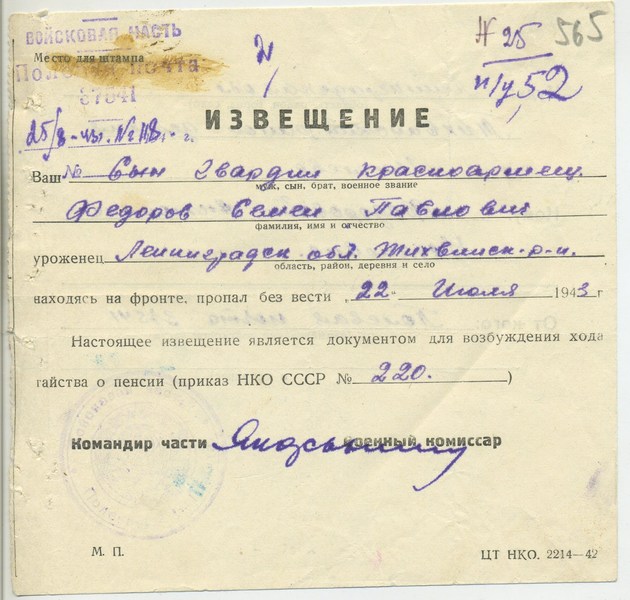 ВОЙСКОВАЯ ЧАСТЬ
Место для штампа
Полевая почта
37541
№ 25 565
п/у 52
ИЗВЕЩЕНИЕ
Ваш Сын Гвардии красноармеец
муж, сын, брат, военное звание
Федоров Семен Павлович
фамилия, имя и отчество
уроженец Ленинградск. обл. Тихвинск. р-н.
область, район, деревня и село
находясь на фронте, пропал без вести „22" Июля 1943 г
Настоящее извещение является документом для возбуждения хода
тайства о пенсии (приказ НКО СССР № 220. )
Командир части Военный комиссар
М. П. ЦТ НКО. 2214—42